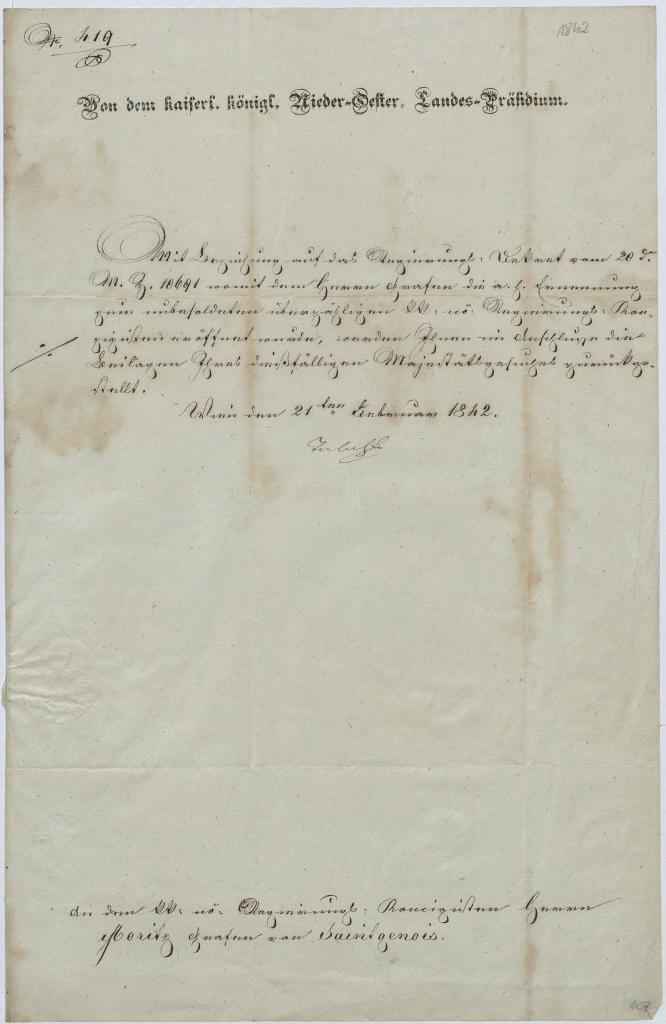 Nr. 419
1842
Von dem kaiserl. königl. Nieder-Oester. Landes-Präsidium.
Mit Beziehung auf das Regierungs-Dekret vom 20 d.
M. Z. 10691 womit dem Herrn Grafen die a. h. Ernennung
zum unbesoldeten überzähligen kk: nö: Regierungs-Kon-
zipisten eröffnet wurde, werden Ihnen im Anschlusse die
Beilagen Ihres dießfälligen Majestätsgesuches zurückge-
stellt.
Wien den 21ten Februar 1842.
An den kk: nö: Regierungs-Koncipisten Herrn
Moritz Grafen von Saintgenois.